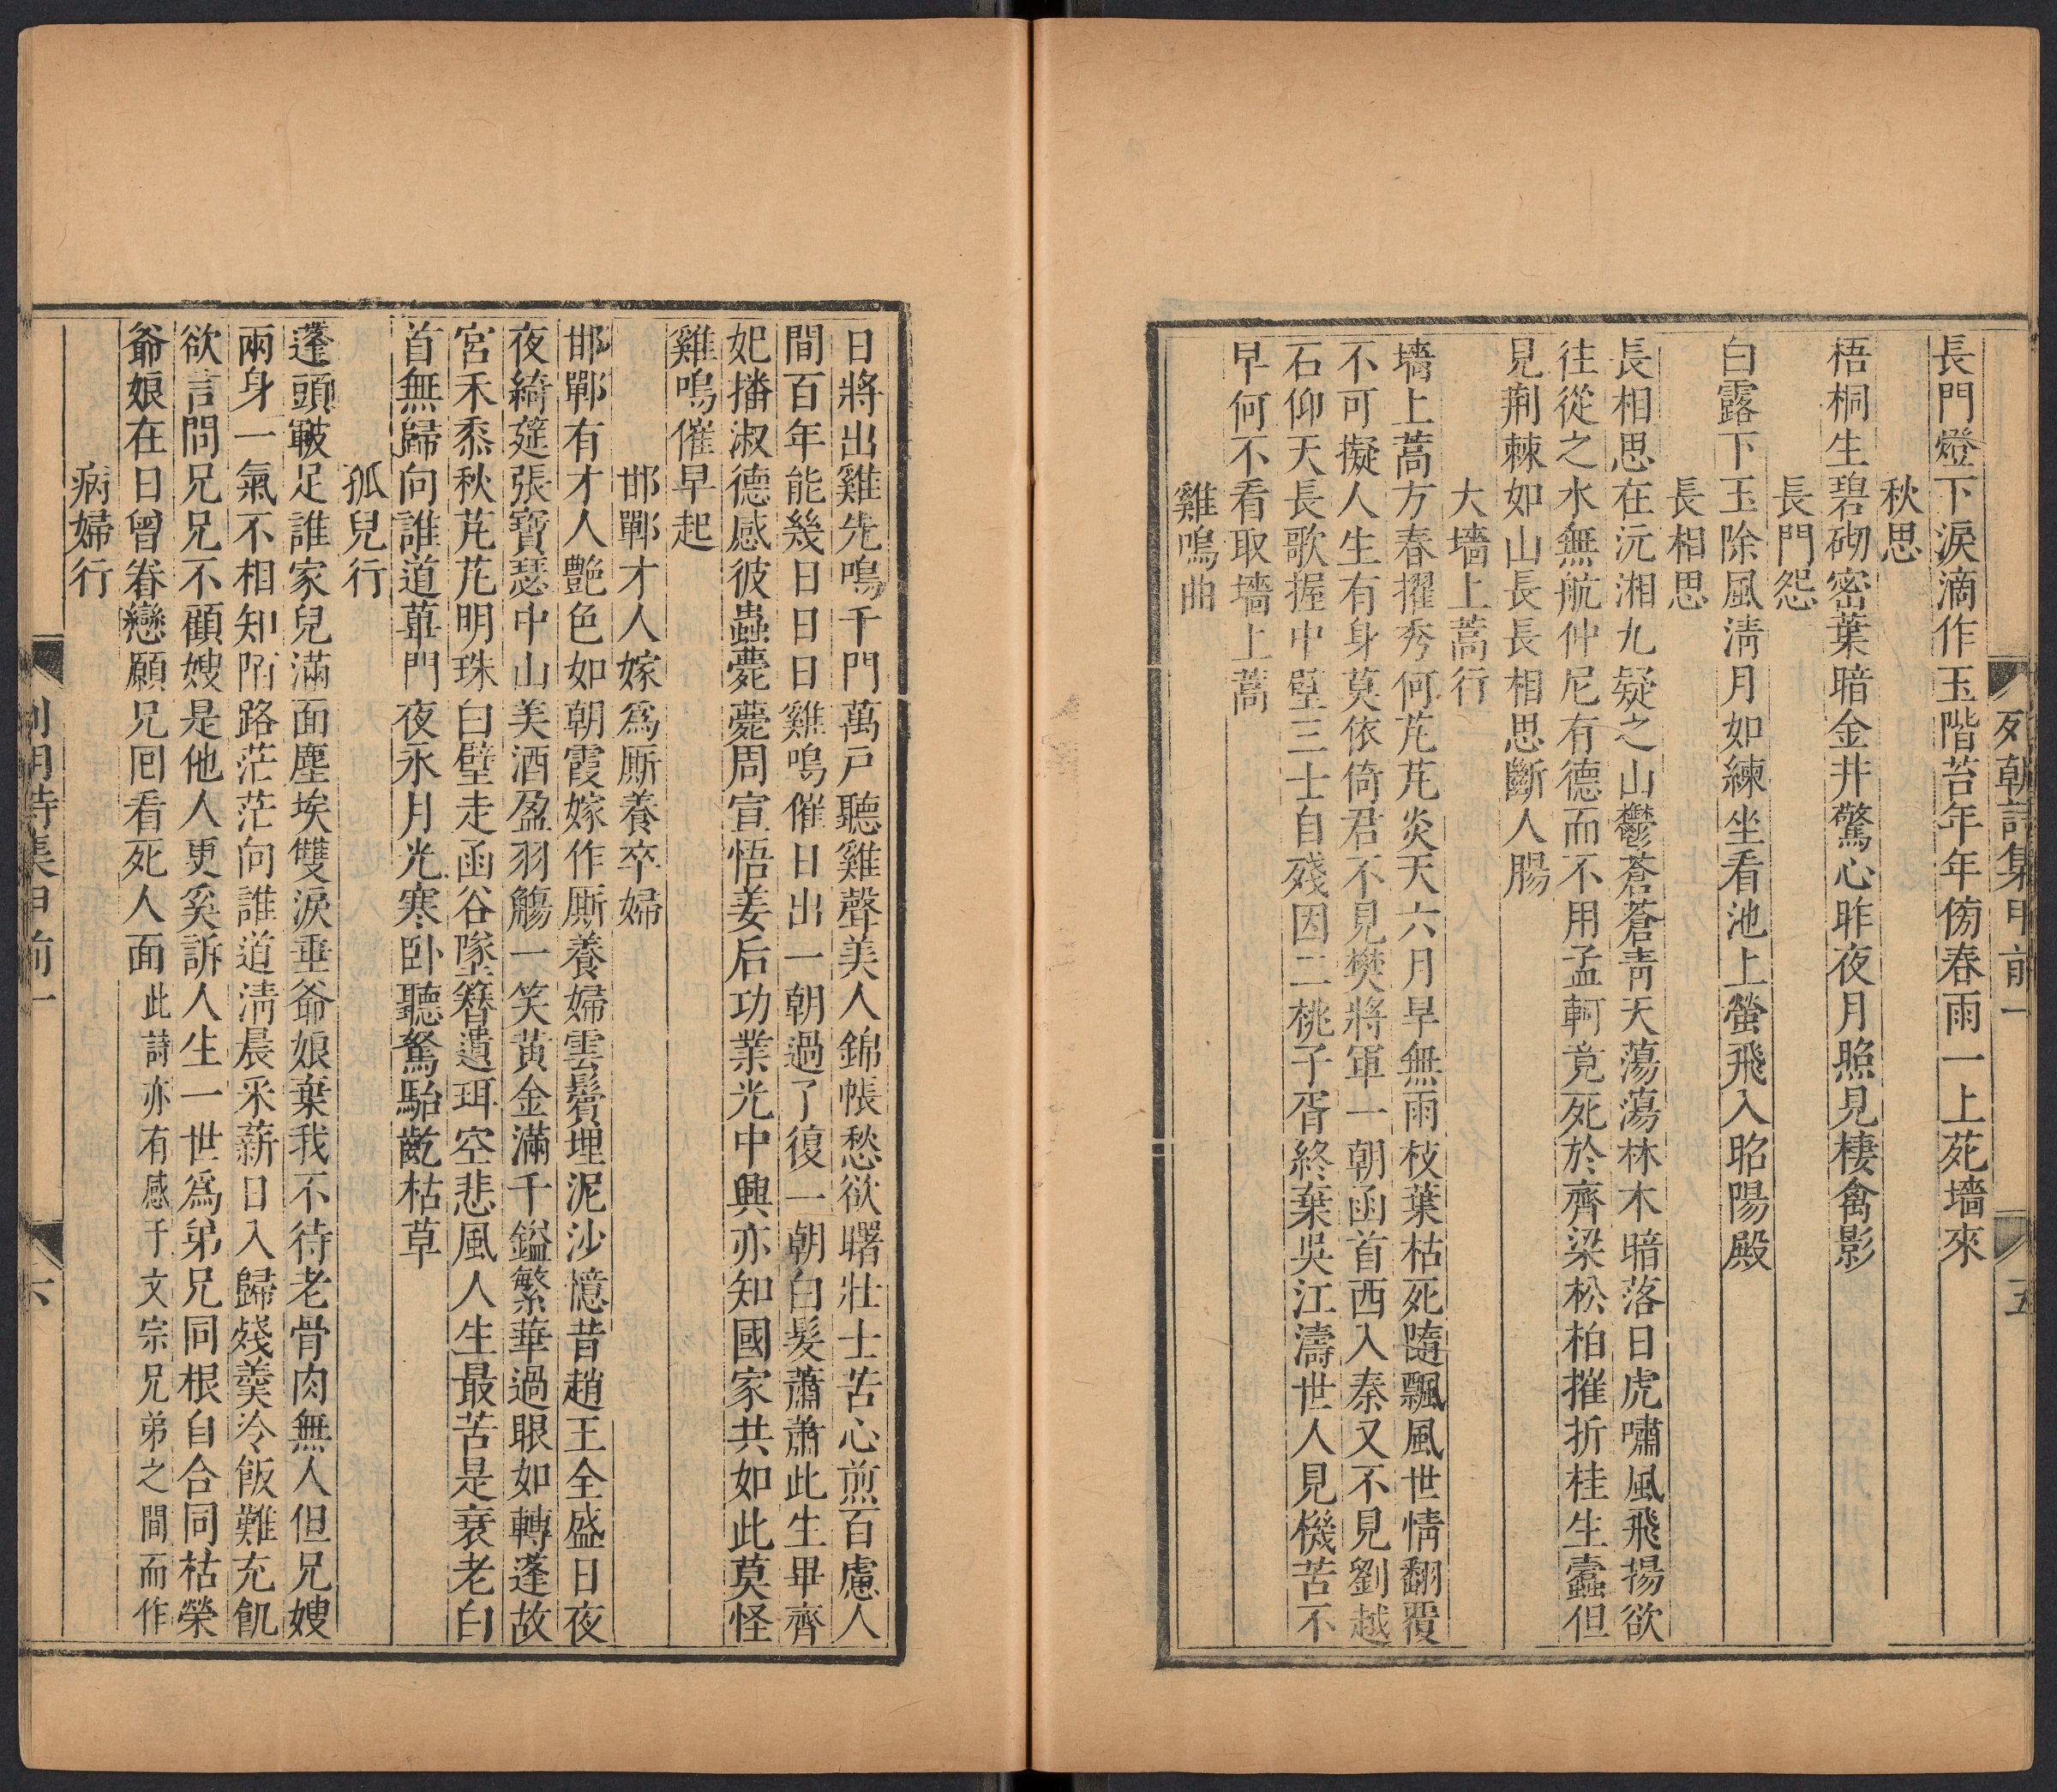 列朝詩集甲前一
五
長門燈下淚滴作玉階苔年年傍春雨一上苑墻來
秋思
梧桐生碧砌密葉暗金井驚心昨夜月照見棲禽影
長門怨
白露下玉除風淸月如練坐看池上螢飛入昭陽殿
長相思
長相思在沅湘九疑之山鬱蒼蒼靑天蕩蕩林木暗落日虎嘯風飛揚欲
往從之水無航仲尼有德而不用孟軻竟死於齊梁松柏摧折桂生蠹但
見荆棘如山長長相思斷人腸
大墻上蒿行
墻上蒿方春擢秀何芃芃炎天六月旱無雨枝葉枯死隨飄風世情翻覆
不可擬人生有身莫依倚君不見樊將軍一朝函首西入秦又不見劉越
石仰天長歌握中壁三士自殘因二桃子胥終棄吳江濤世人見機苦不
早何不看取墻上蒿
雞鳴曲
日將出雞先鳴千門萬戸聽雞聲美人錦帳愁欲曙壯士苦心煎百慮人
間百年能幾日日日雞鳴催日出一朝過了復一朝白髮蕭蕭此生畢齊
妃播淑德感彼蟲薨薨周宣悟姜后功業光中興亦知國家共如此莫怪
雞鳴催早起
邯鄲才人嫁爲厮養卒婦
邯鄲有才人艷色如朝霞嫁作厮養婦雲鬢埋泥沙憶昔趙王全盛日夜
夜綺筵張寶瑟中山美酒盈羽觴一笑黃金滿千鎰繁華過眼如轉蓬故
宮禾黍秋芃芃明珠白璧走函谷墜簪遺珥空悲風人生最苦是衰老白
首無歸向誰道蓽門夜永月光寒卧聽駑駘齕枯草
孤兒行
蓬頭皸足誰家兒滿面塵埃雙淚垂爺娘棄我不待老骨肉無人但兄嫂
兩身一氣不相知陌路茫茫向誰道淸晨采薪日入歸殘羹冷飯難充飢
欲言問兄兄不顧嫂是他人更奚訴人生一世爲弟兄同根自合同枯榮
爺娘在日曾眷戀願兄囘看死人面此詩亦有感于文宗兄弟之間而作
病婦行
六